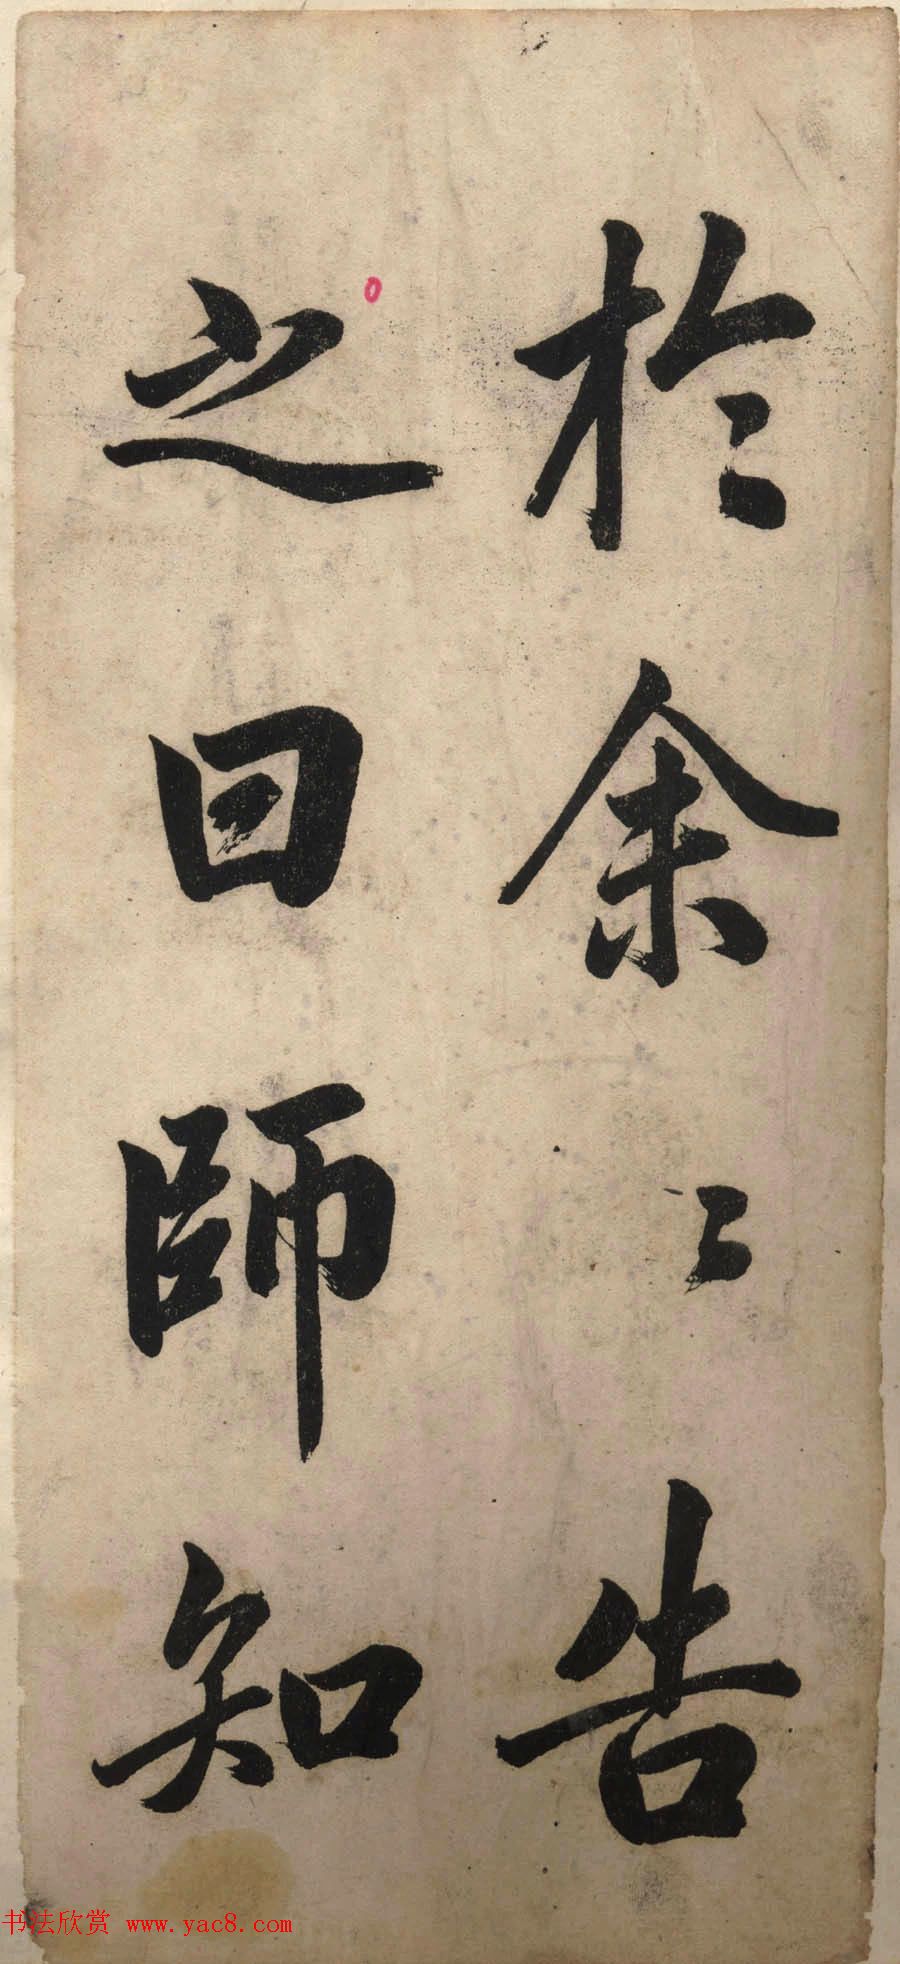 於余〻告
之曰師知
书法欣赏 www.yac8.com